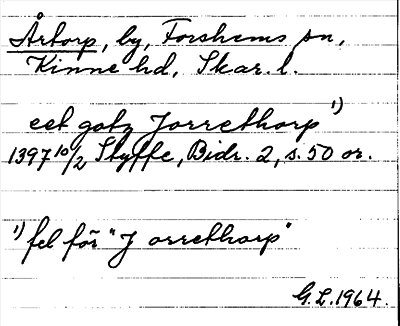 Årtorp, by, Forshems sn,
Kinne hd, Skar. l.
eet gotz Jorrethorp ¹)
1397 10/2 Styffe, Bidr. 2, s. 50 or.
¹) fel för "J orrethorp"
G.L. 1964.